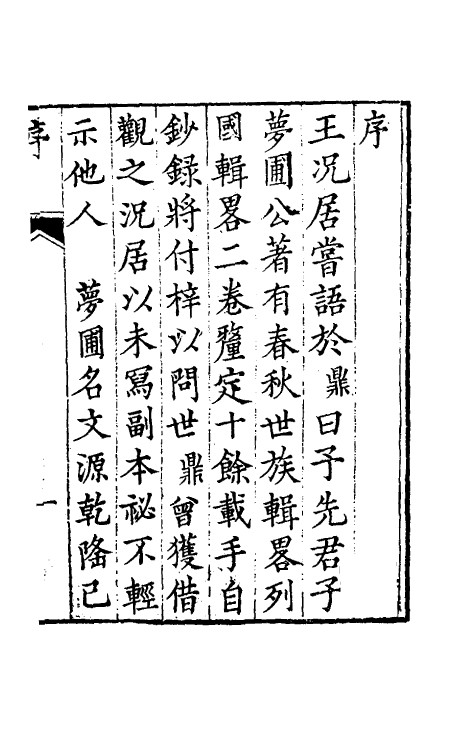 序
王况居嘗語於 鼎曰子先君子
夢圃公著有春秋世族輯畧列
國輯畧二卷釐定十餘載手自
鈔録將付梓以問世 鼎曾獲借
觀之况居以未寫副本祕不輕
示他人 夢圃名文源乾隆已
序
一